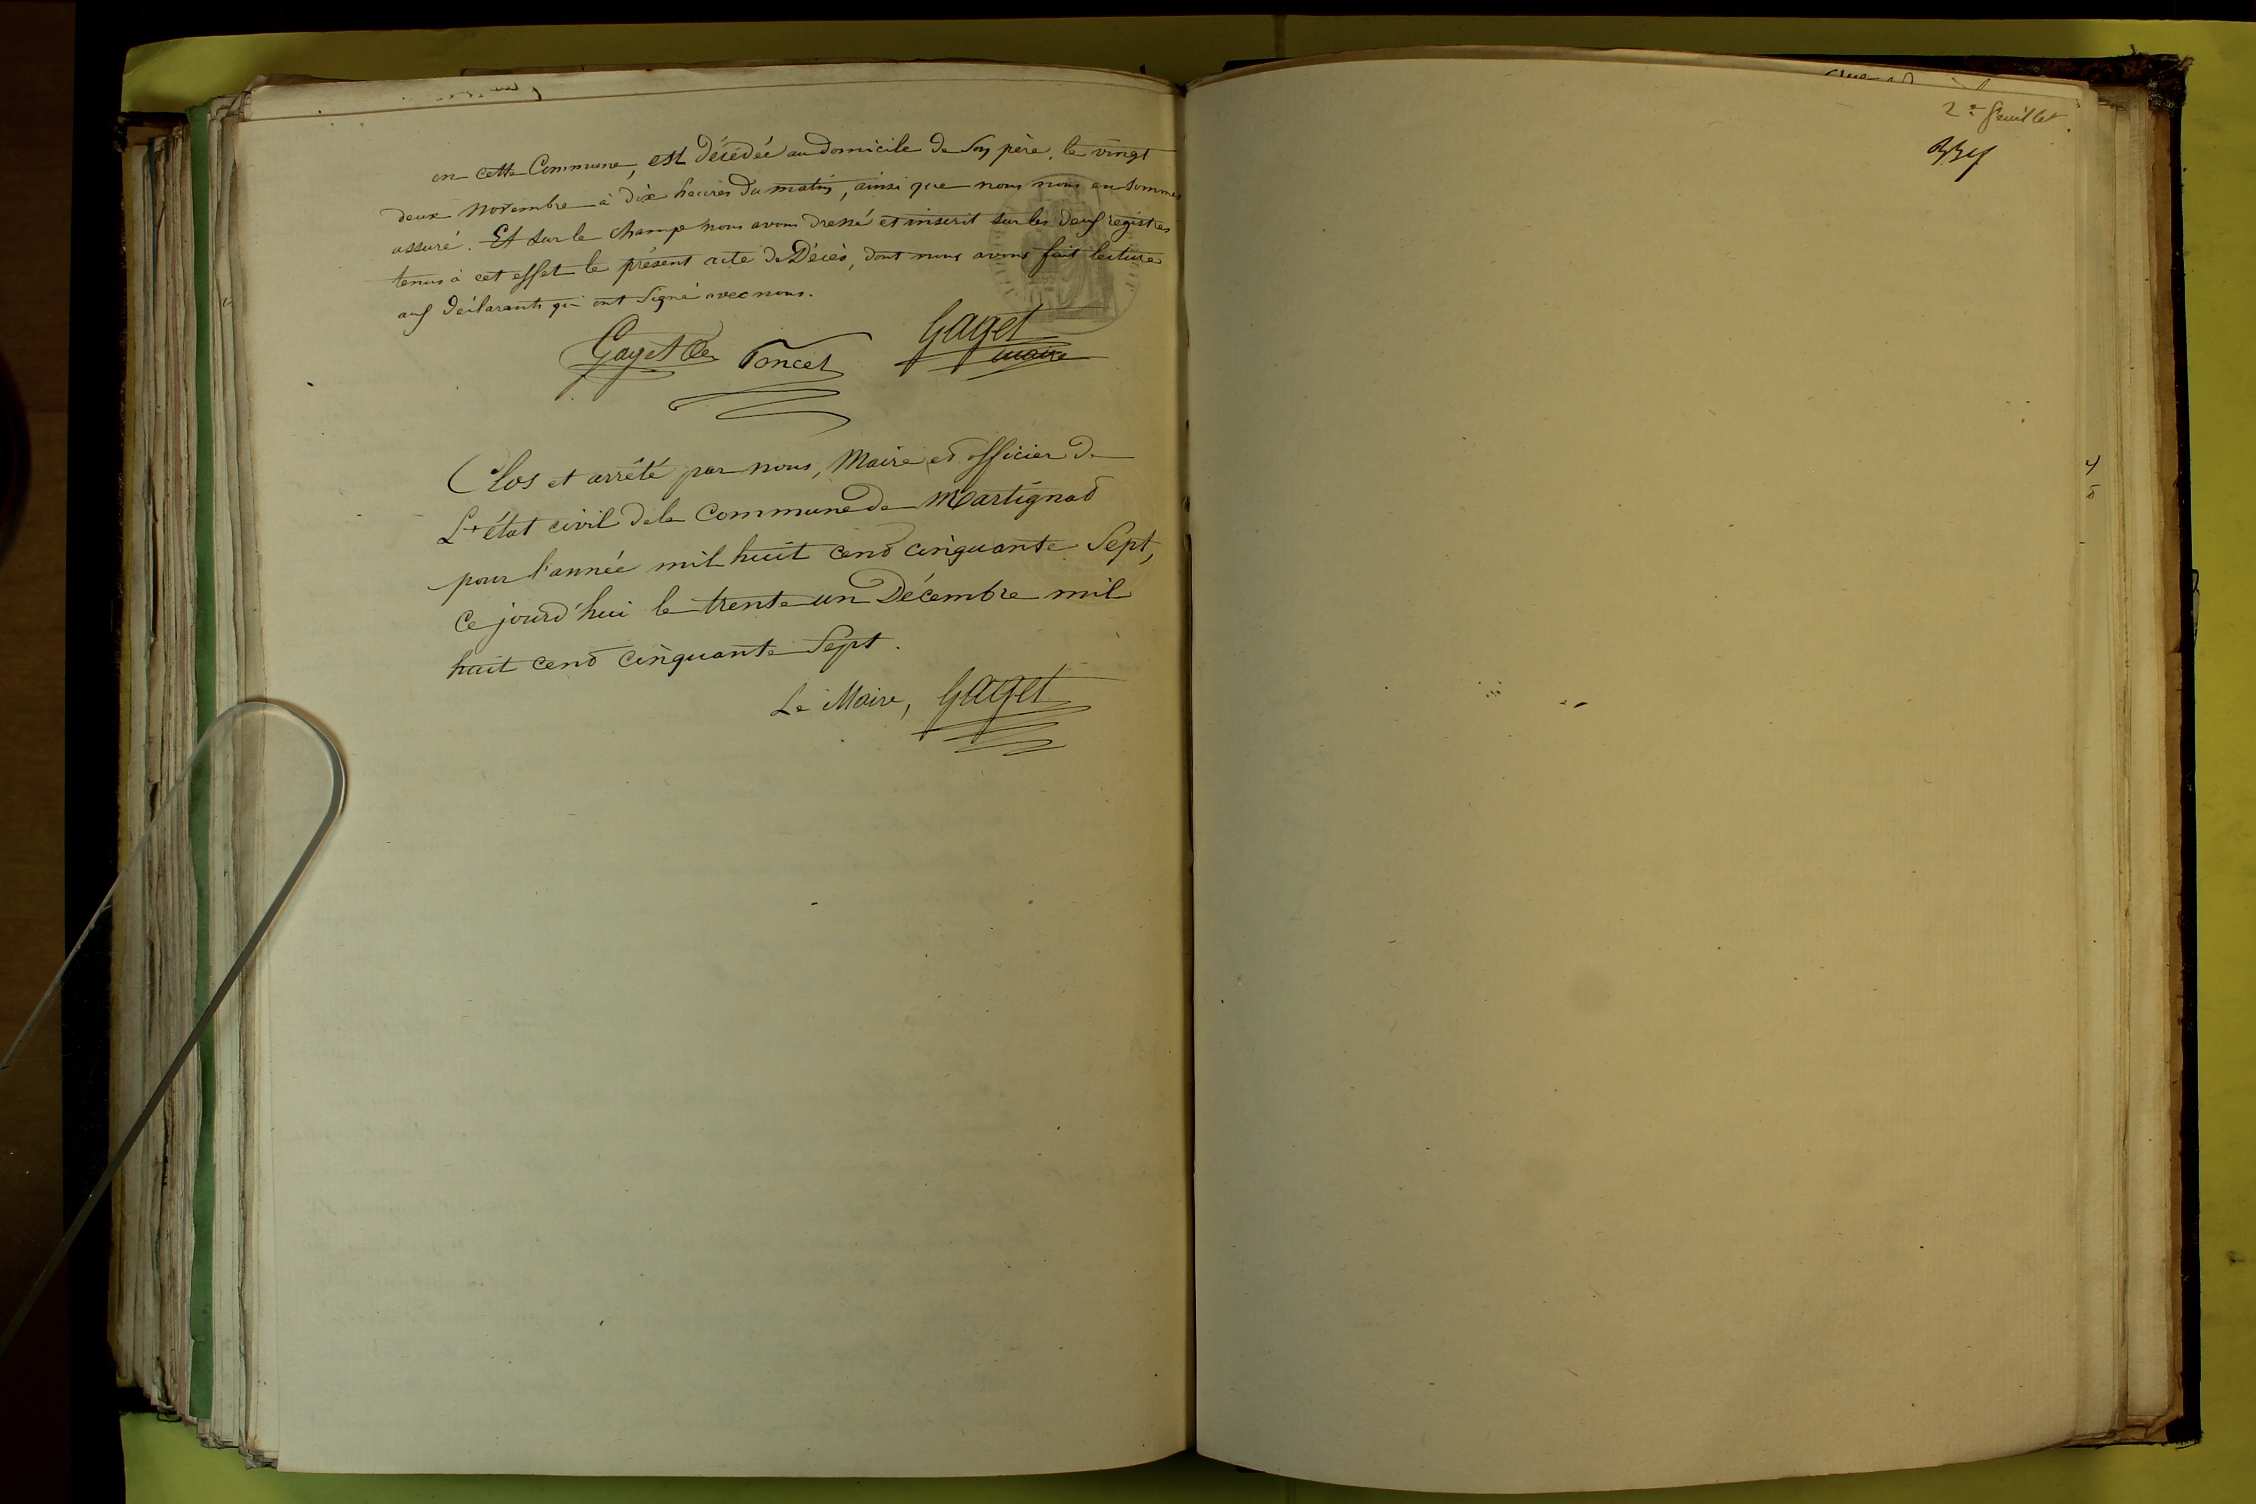 en cette Commune, est décédée au domicile de son père, le vingt
deux novembre à dix heures du matin, ainsi que nous nous en sommes
assuré. Et sur le champ nous avons dressé et inscrit sur les deux registres
tenus à cet effet le présent acte de Décès, dont nous avons fait lecture
aux déclarants qui ont signé avec nous.
Gayet Poncet Gaget
maire
Clos et arrêté par nous, Maire et officier de
L'état civil de la Commune de Martignat
pour l'année mil huit cent cinquante Sept,
Ce jourd'hui le trente un Décembre mil
huit cent cinquante Sept.
Le Maire, Gaget
2e feuillet.